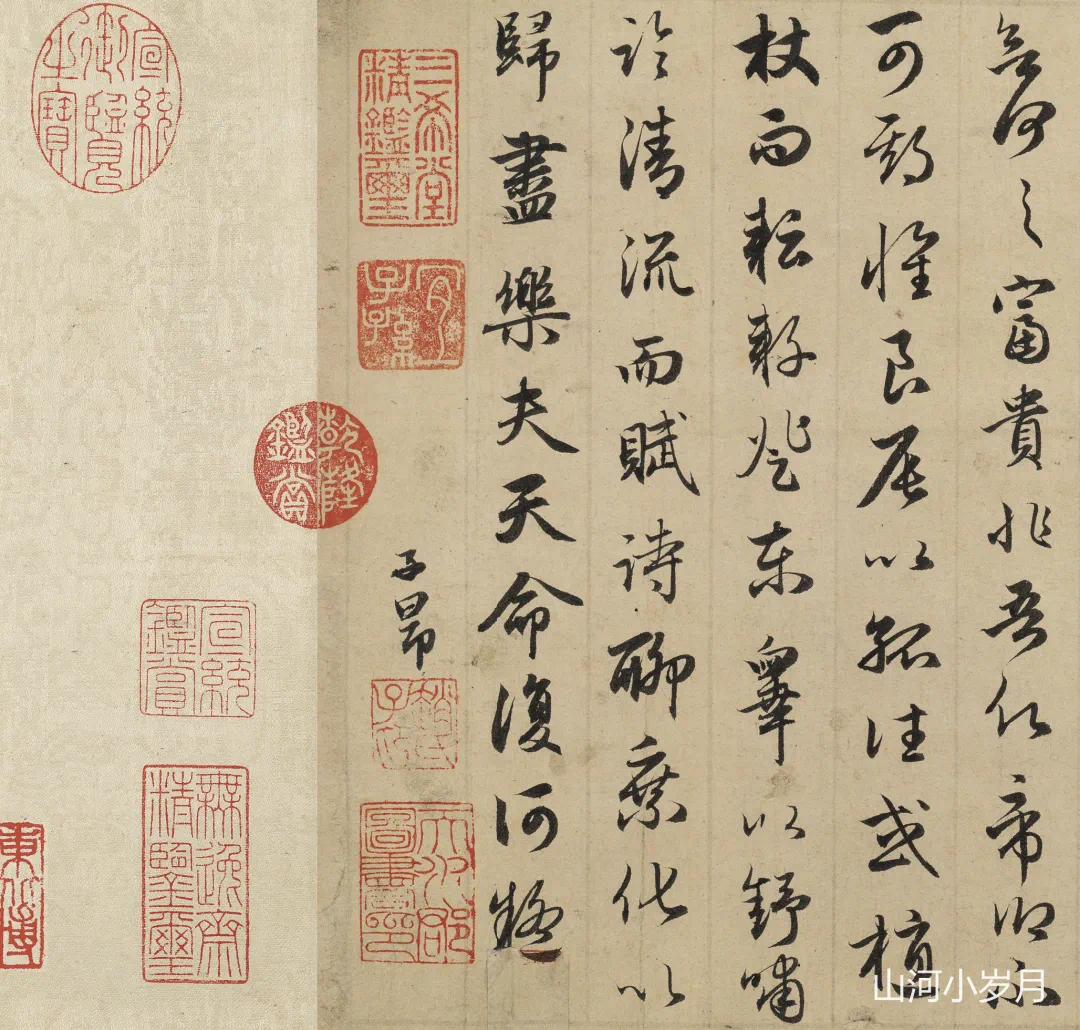 何之富貴非吾願帝鄉不
可期懷良辰以孤往或植
杖而耘耔登東皋以舒嘯
臨清流而賦詩聊乘化以
歸盡樂夫天命復何疑
子昂
三希堂精鑑璽
宜子孫
趙氏子昂
天水郡圖書印
乾隆鑑賞
宣統御覽之寶
宣統鑑賞
無逸齋精鑒璽
山河小岁月